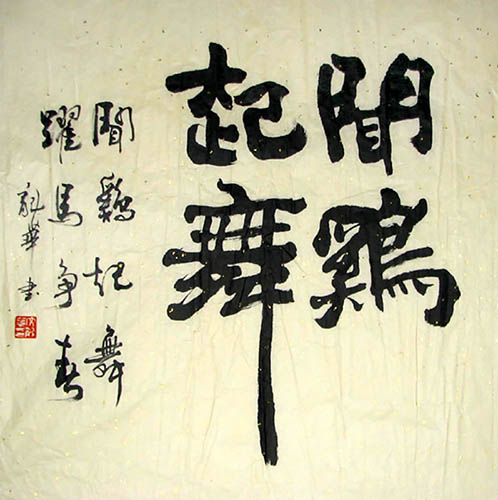 聞鷄
起舞
聞鷄起舞
躍馬争春